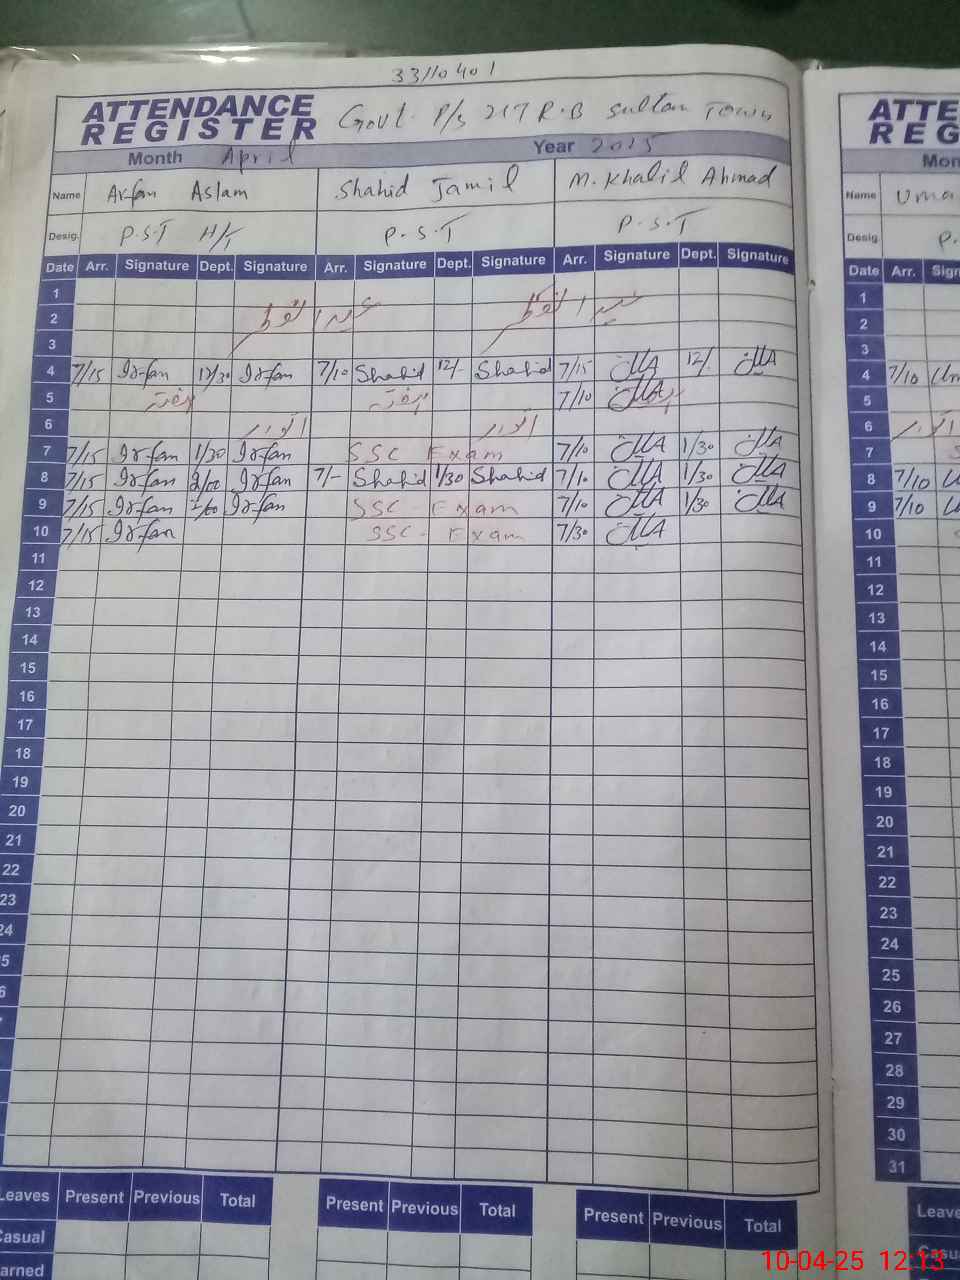 33110401
ATTENDANCE REGISTER Govt. P/S 217 R.B Sultan Town
Month April Year 2025
Name Arfan Aslam Shahid Jamil M. Khalil Ahmad
Desig. P.S.T H/T P.S.T P.S.T
Date Arr. Signature Dept. Signature Arr. Signature Dept. Signature Arr. Signature Dept. Signature
1
2 عید الفطر عید الفطر
3
4 7/15 Irfan 12/30 Irfan 7/10 Shahid 12/- Shahid 7/15 12/.
5 ہفتہ ہفتہ 7/10
6 اتوار اتوار
7 7/15 Irfan 1/30 Irfan SSC Exam 7/10 1/30
8 7/15 Irfan Irfan 7/- Shahid 1/30 Shahid 7/10 1/30
9 7/15 Irfan Irfan SSC - Exam 7/10 1/30
10 7/15 Irfan SSC - Exam 7/30
11
12
13
14
15
16
17
18
19
20
21
22
23
24
Leaves Present Previous Total Present Previous Total Present Previous Total
Casual
ATTE
REG
Mon
Name Uma
Desig. P.
Date Arr. Sign
1
2
3
4 7/10
5
6
7
8 7/10
9 7/10
10
11
12
13
14
15
16
17
18
19
20
21
22
23
24
25
26
27
28
29
30
31
Leave
10-04-25 12:13